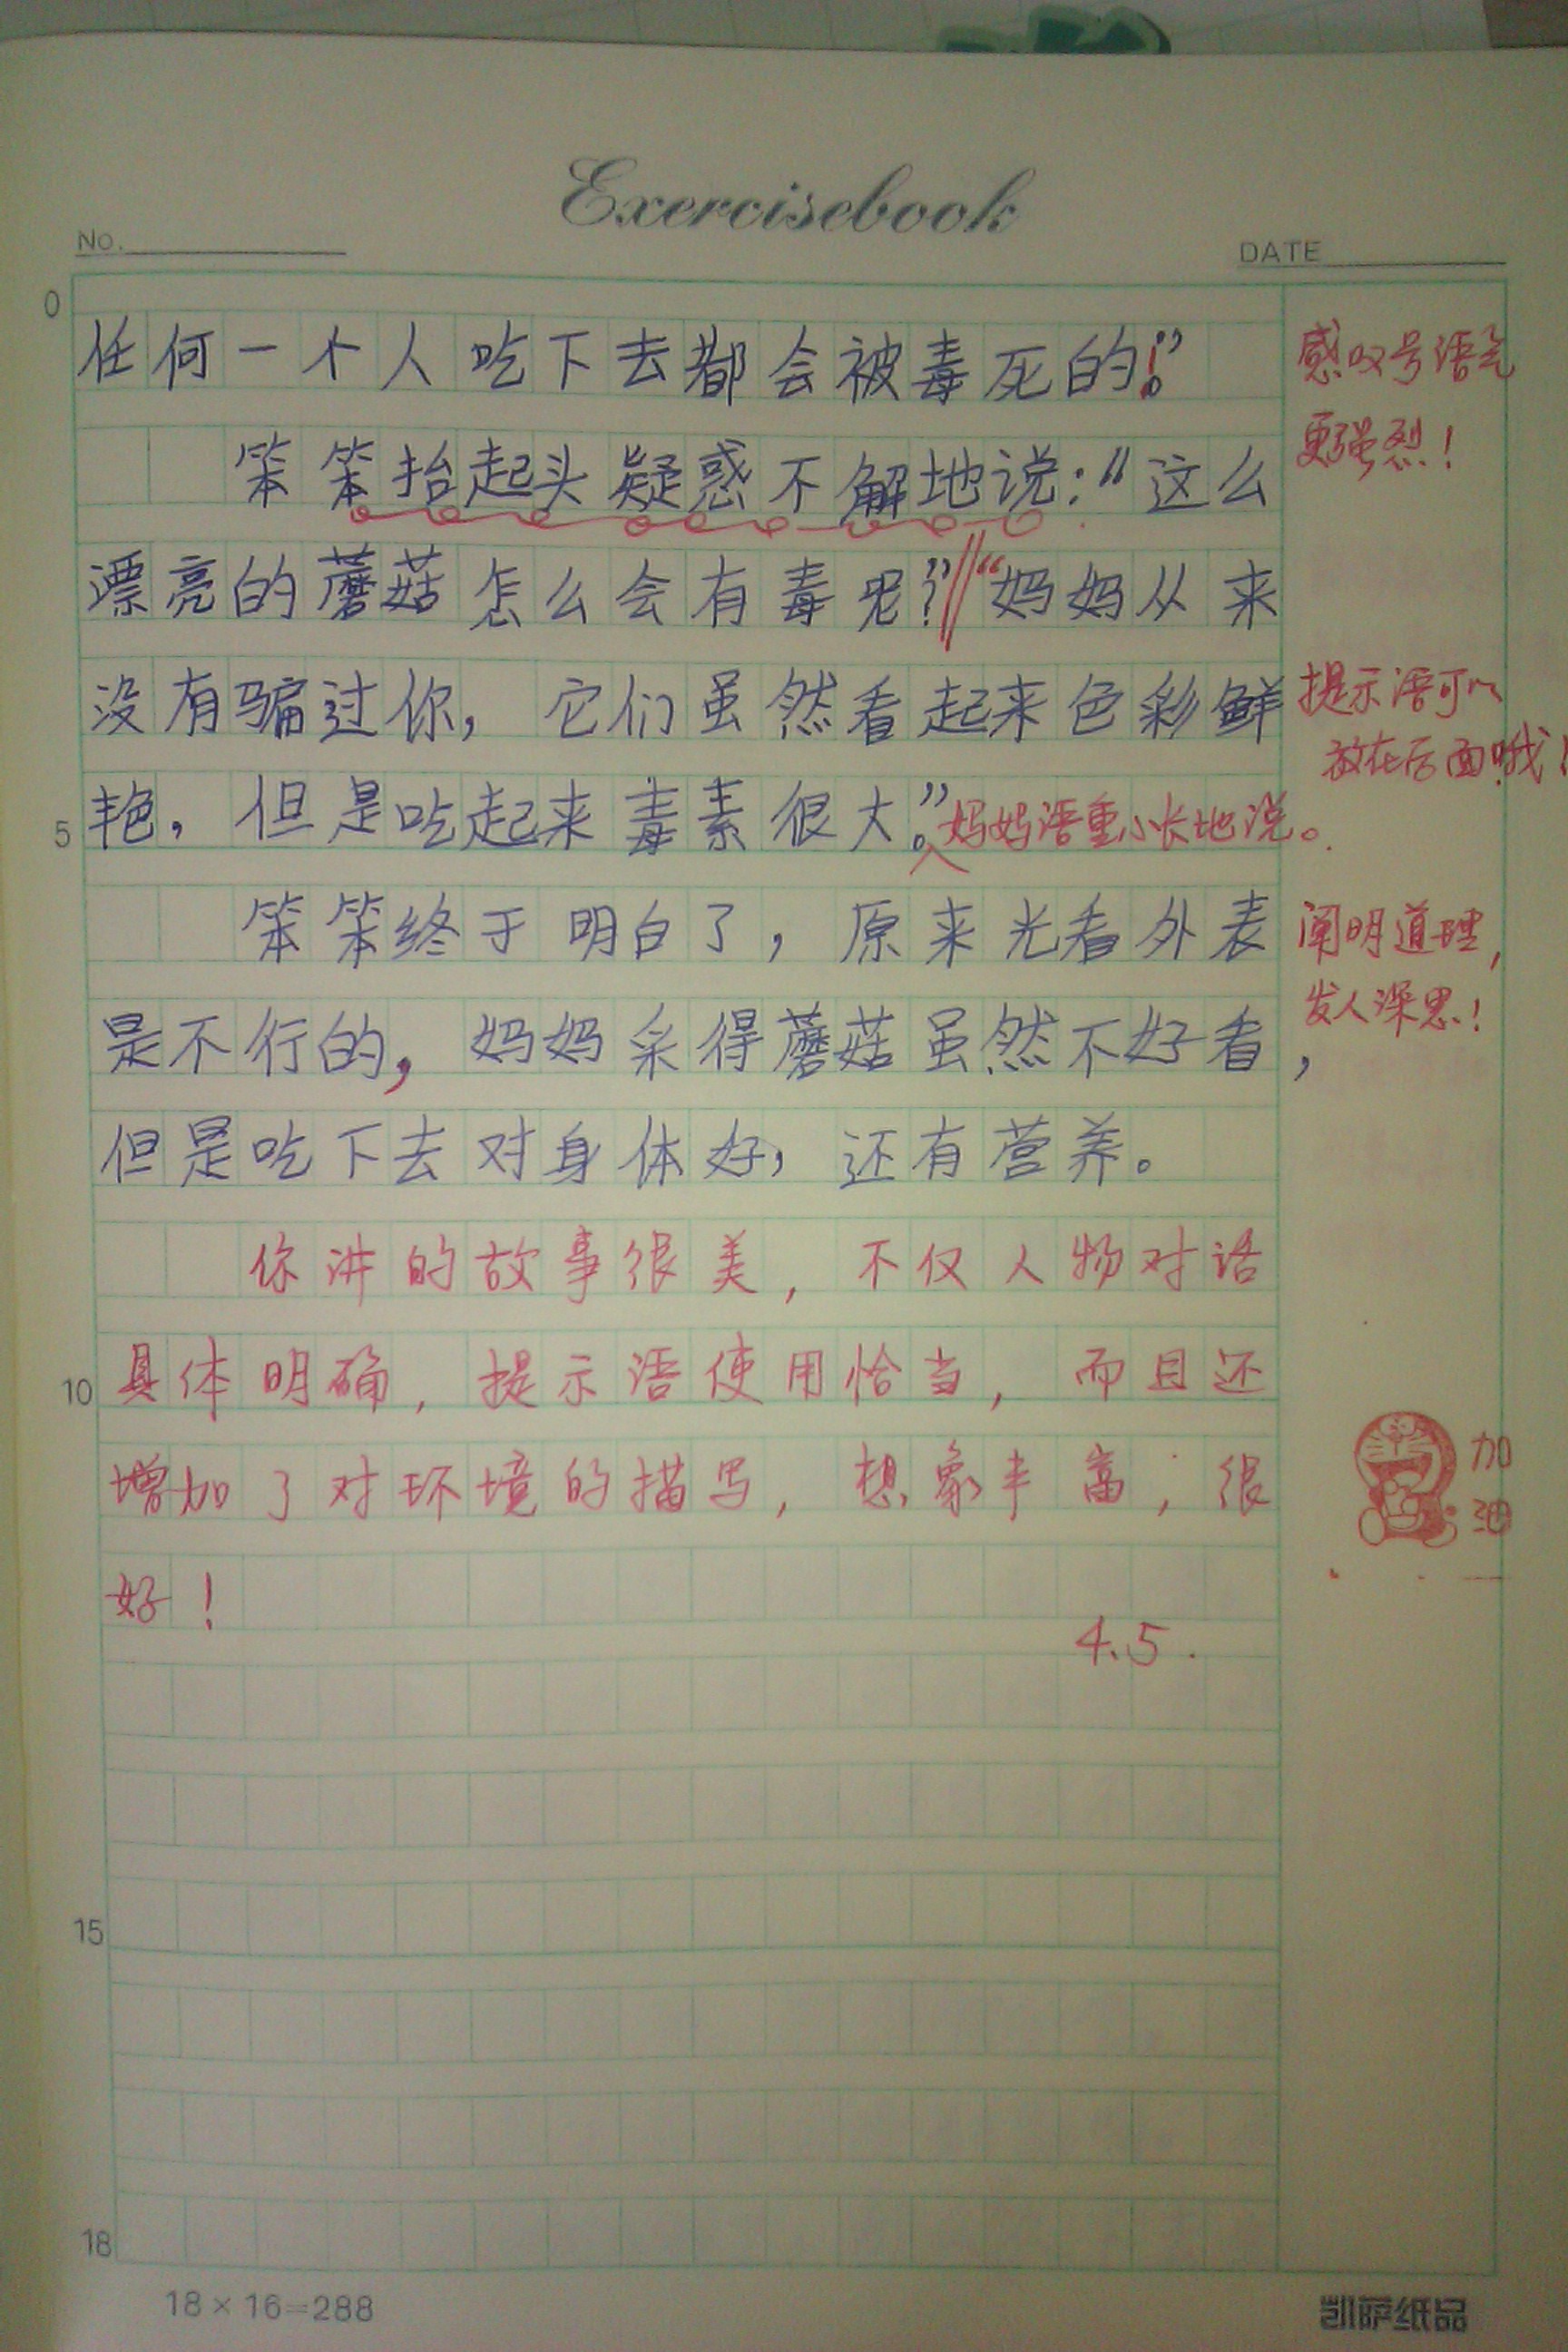 Exercisebook
No.
DATE
0
任何一个人吃下去都会被毒死的!。”
感叹号语气
更强烈!
笨笨抬起头疑惑不解地说:“这么
漂亮的蘑菇怎么会有毒呢?”//“妈妈从来
没有骗过你,它们虽然看起来色彩鲜
提示语可以
放在后面哦!
5
艳,但是吃起来毒素很大。”妈妈语重心长地说。
笨笨终于明白了,原来光看外表
阐明道理,
发人深思!
是不行的,妈妈采得蘑菇虽然不好看,
但是吃下去对身体好,还有营养。
你讲的故事很美,不仅人物对话
10
具体明确,提示语使用恰当,而且还
增加了对环境的描写,想象丰富,很
加
油
好!
4.5.
15
18
18×16=288
凯萨纸品